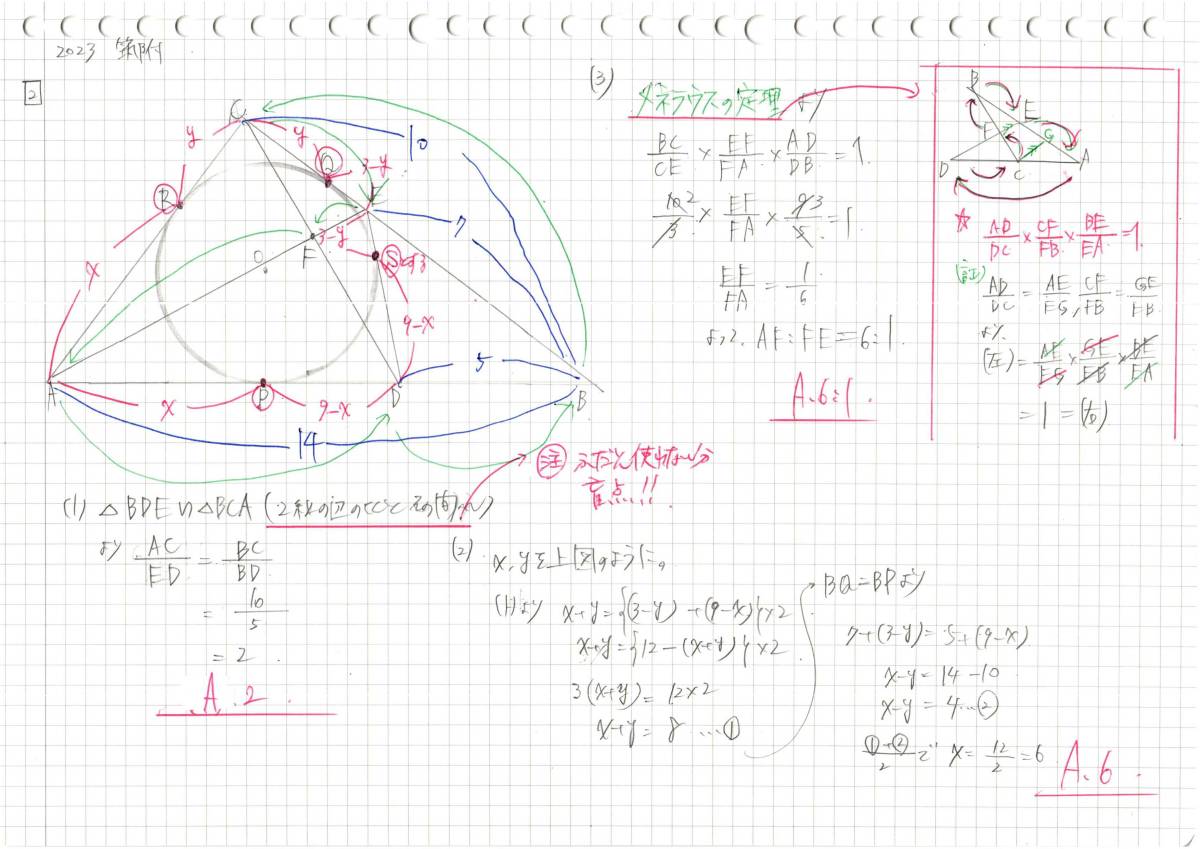 2023 筑附
2
C
y
y
Q
3-y
10
E
R
3-y
7
F
S
x
O
9-x
5
A
x
P
9-x
D
B
14
注 ふだん使わない分
盲点!!
(1) △BDE∽△BCA (2組の辺の比とその間の角)
より AC/ED = BC/BD
= 10/5
= 2
A. 2.
(2) x, yを上図のように。
(1)より x+y={(3-y)+(9-x)}×2
x+y={12-(x+y)}×2
3(x+y)=12×2
x+y=8 …①
BQ=BPより
7+(3-y)=5+(9-x)
x-y=14-10
x-y=4…②
①+②/2で x=12/2=6
A. 6.
(3) メネラウスの定理より
BC/CE×EF/FA×AD/DB=1.
10/3×EF/FA×9/5=1
EF/FA=1/6
よって、AF:FE=6:1.
A. 6:1.
B
E
F
G
D
C
A
☆ AD/DC×CF/FB×BE/EA=1.
(証)
AD/DC=AE/EG, CF/FB=GE/EB
より、
(左)=AE/EG×GE/EB×BE/EA
=1=(右)